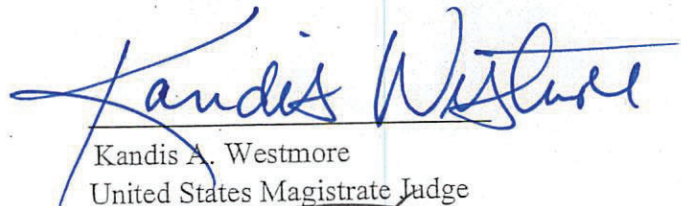 Kandis Westmore
Kandis A. Westmore
United States Magistrate Judge